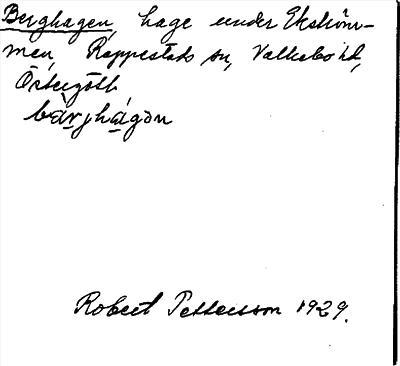 Berghagen, hage under Ekström-
men, Rappestads sn, Valkebo hd,
Östergötl.
bàrjhágon
Robert Pettersson 1929.